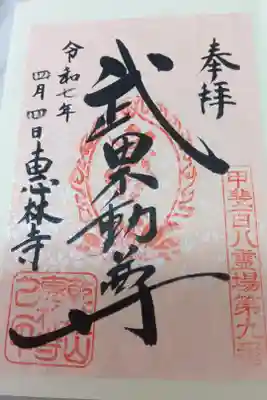 奉拝
甲斐百八霊場第九番
武田不動尊
令和七年
四月四日
惠林寺